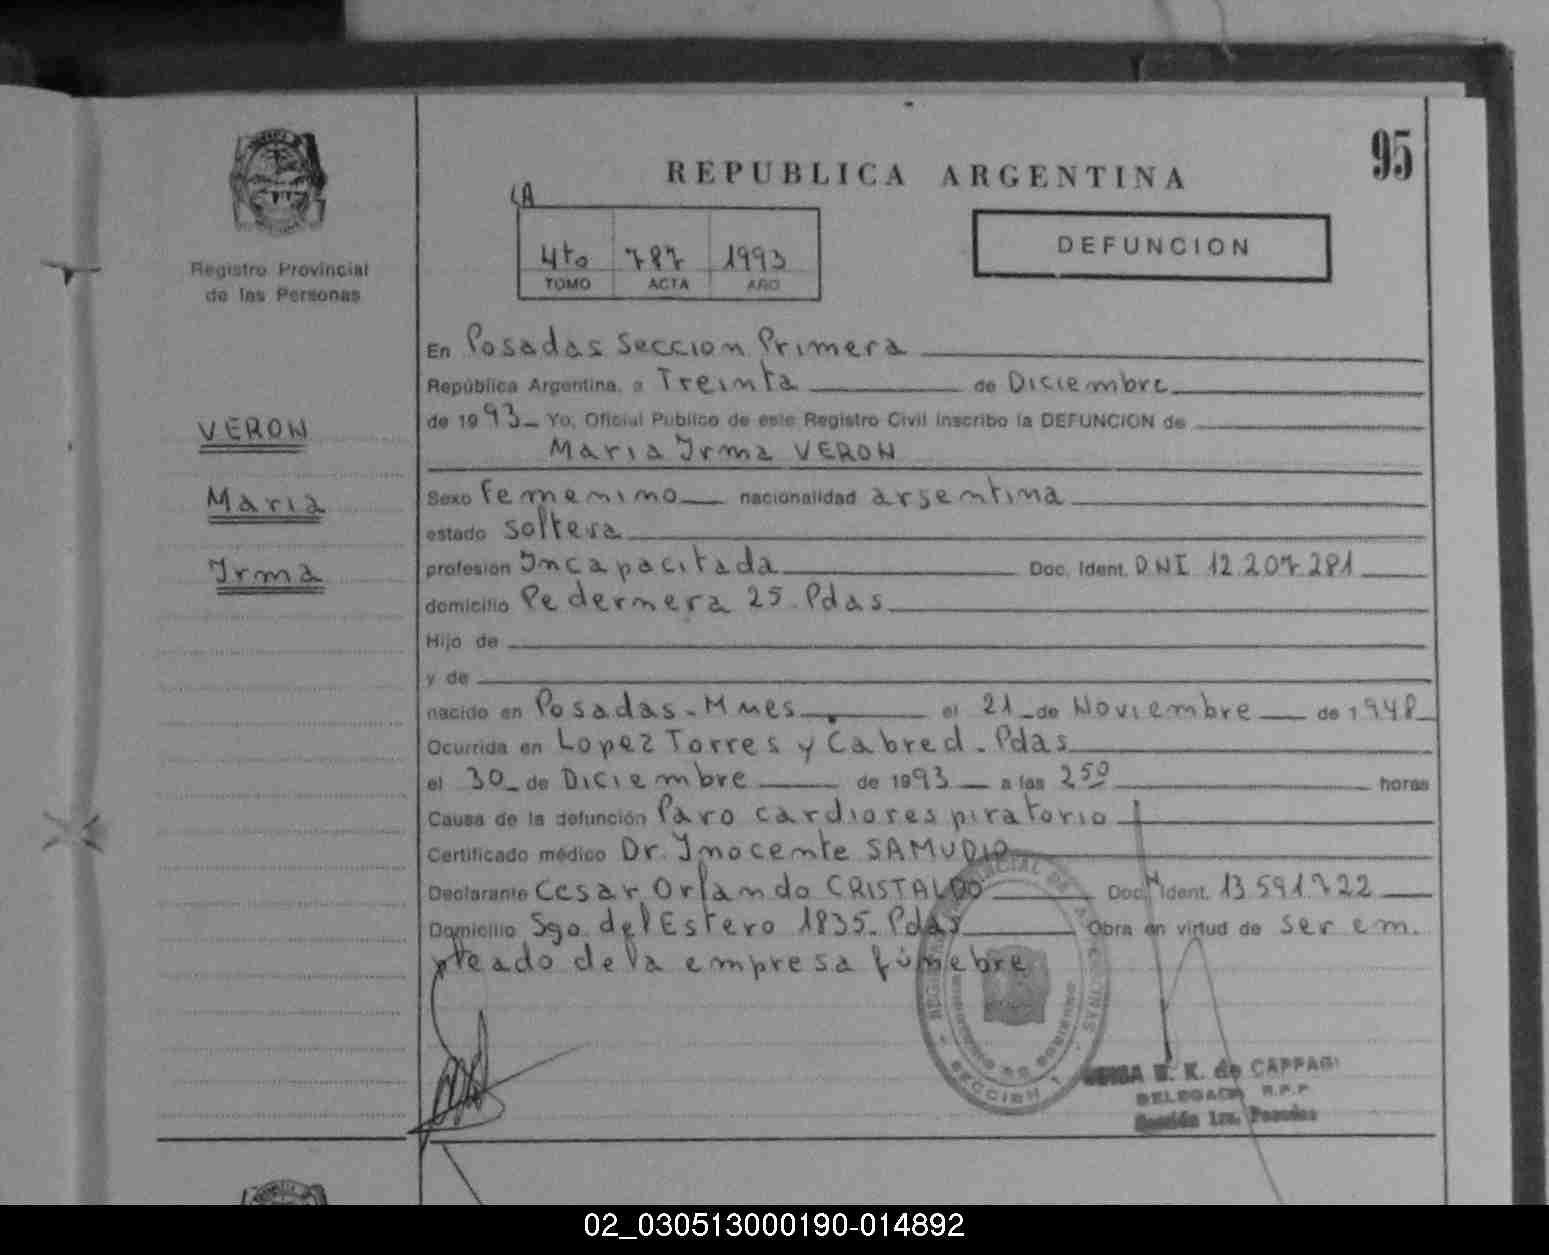 95
REPUBLICA ARGENTINA
LA
4to 787 1993
TOMO ACTA AÑO
DEFUNCION
Registro Provincial
de las Personas
VERON
Maria
Irma
En Posadas Seccion Primera
República Argentina, a Treinta de Diciembre
de 1993 Yo, Oficial Publico de este Registro Civil inscribo la DEFUNCION de
Maria Irma VERON
Sexo Femenino nacionalidad argentina
estado Soltera
profesion Incapacitada Doc. Ident. DNI 12.207.281
domicilio Pedernera 25. Pdas
Hijo de
y de
nacido en Posadas - Mnes el 21 de Noviembre de 1948
Ocurrida en Lopez Torres y Cabred. Pdas
el 30 de Diciembre de 1993 a las 2 50 horas
Causa de la defunción Paro cardiorespiratorio
Certificado médico Dr. Inocente SAMUDIO
Declarante Cesar Orlando CRISTALDO Doc. Ident. 13.591.722
Domicilio Sgo. del Estero 1835. Pdas Obra en virtud de ser em.
pleado de la empresa fúnebre
SECCION 1
E. K. de CAPPAGI
DELEGADA R.P.P
Sección 1ra. Posadas
02_030513000190-014892